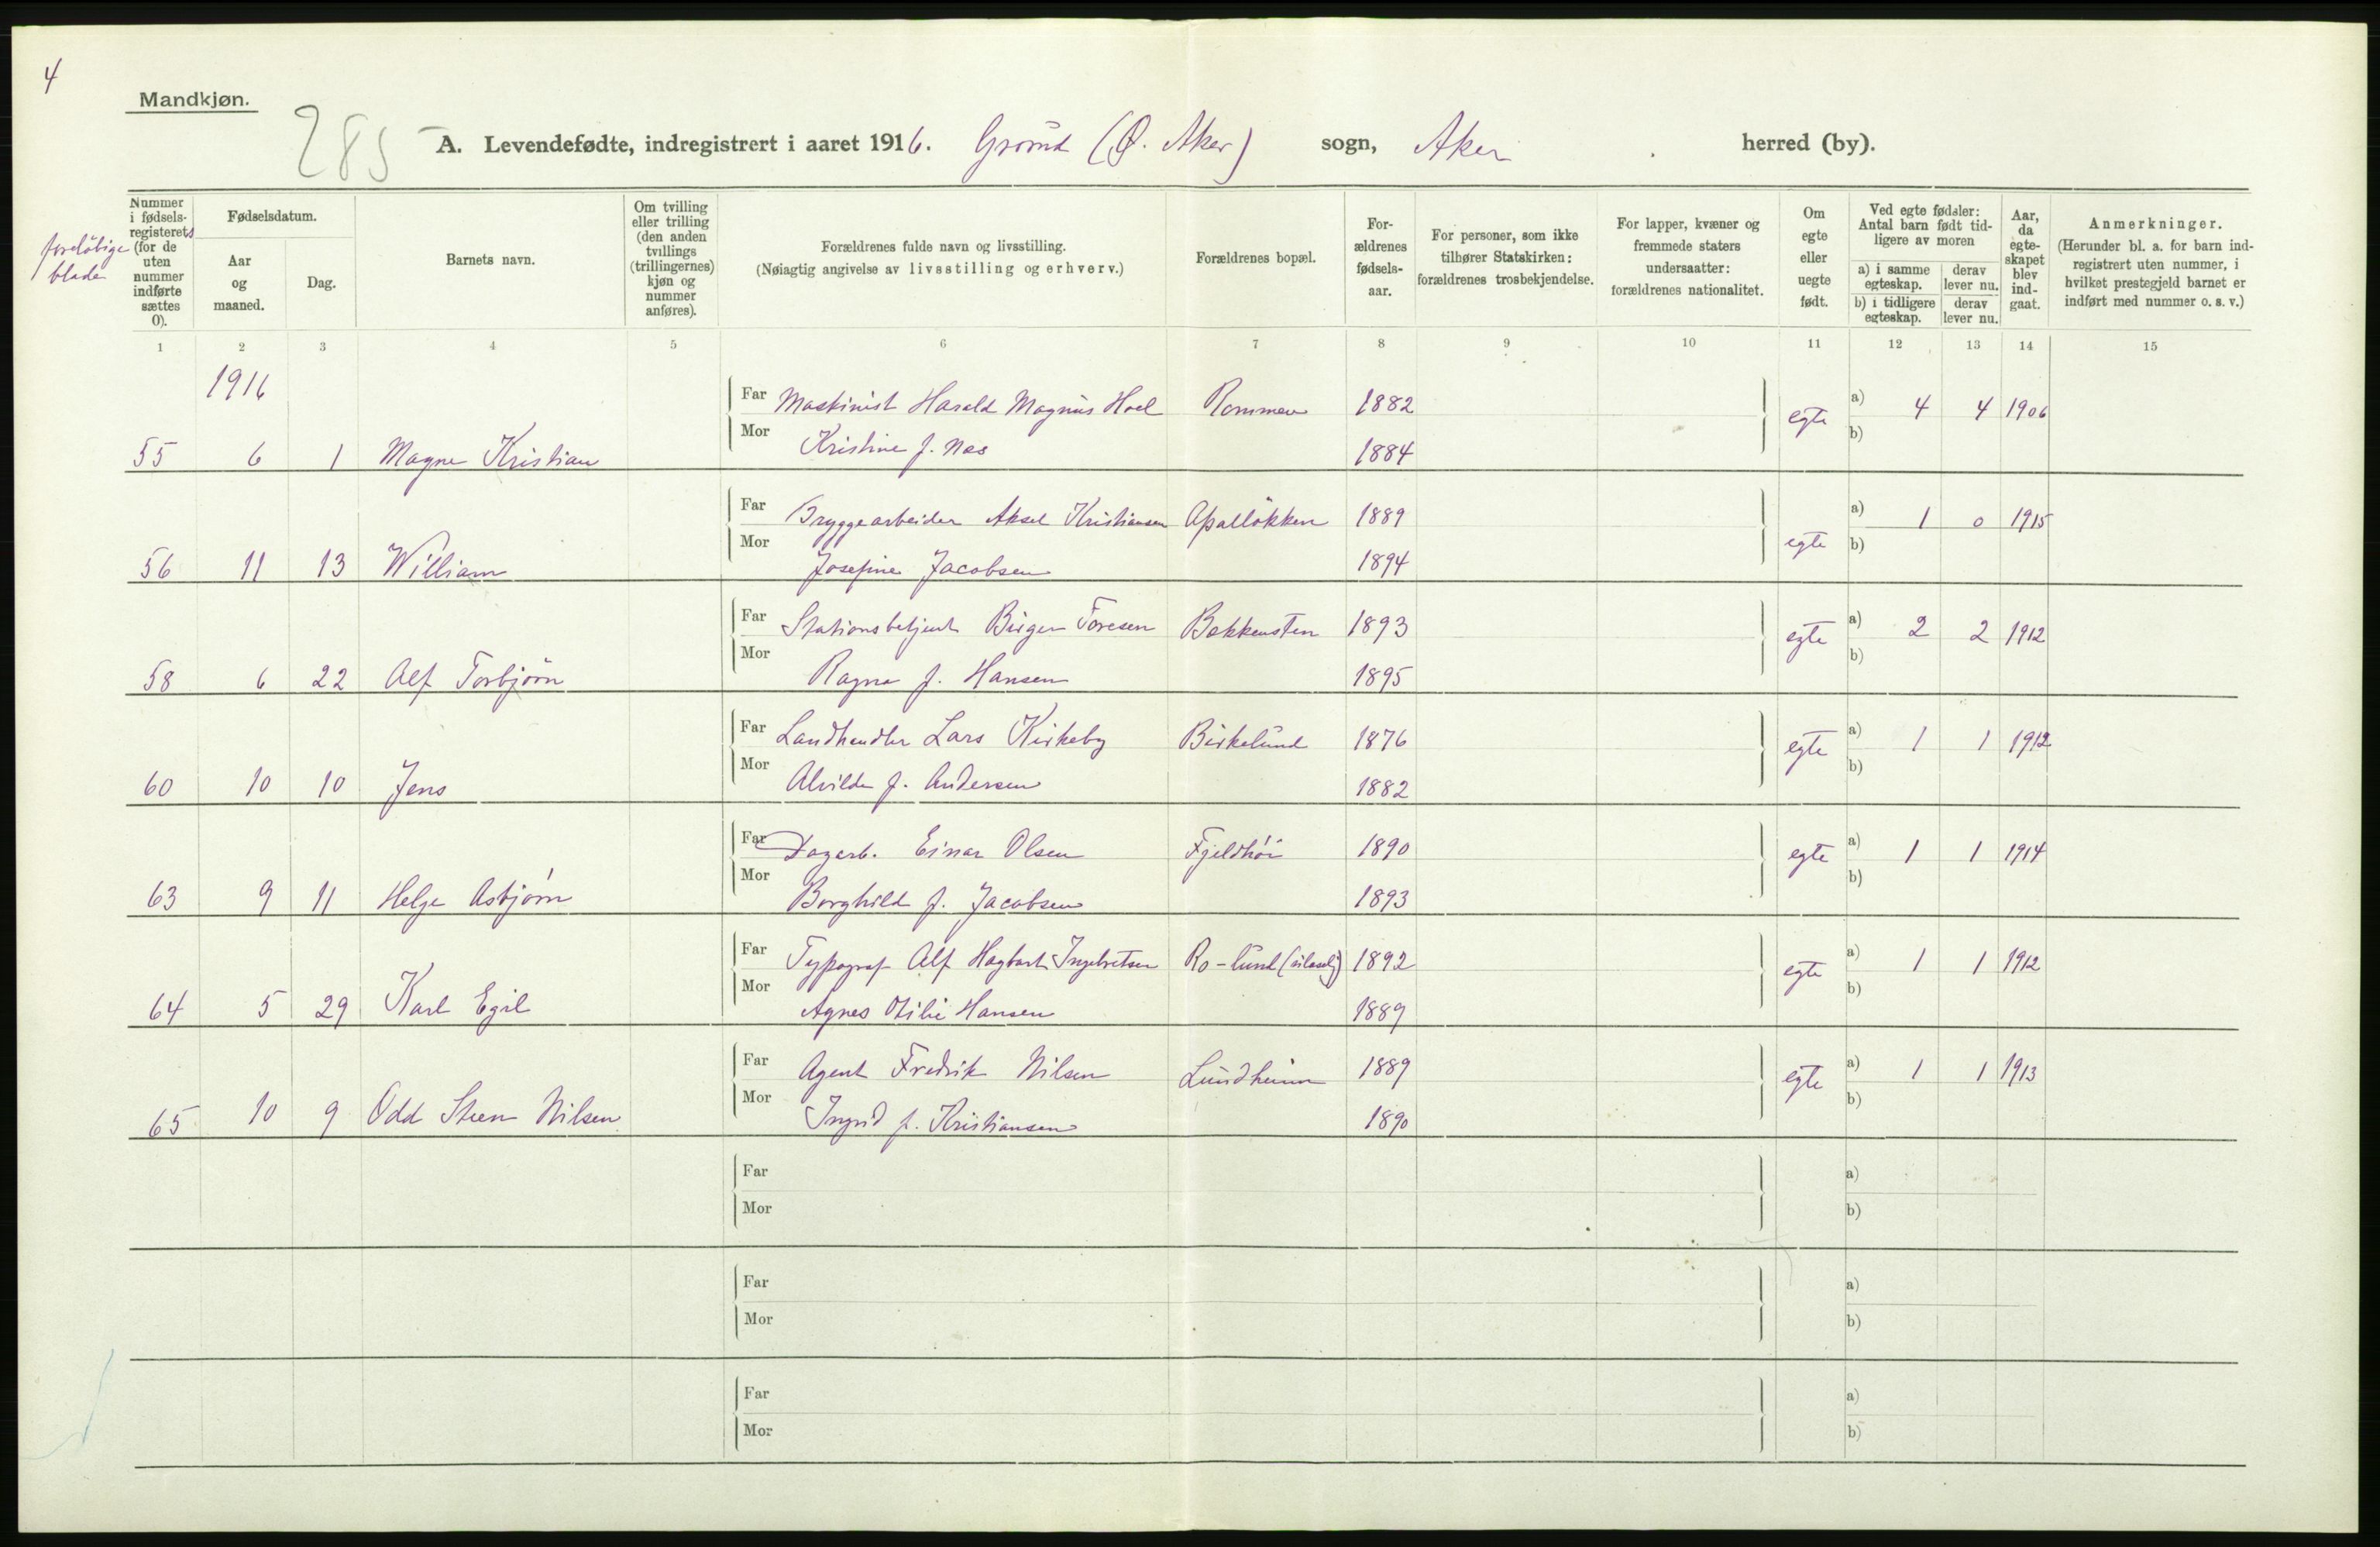 4
Mandkjøn.
285
A. Levendefødte, indregistrert i aaret 1916. Grorud (Ø. Aker) sogn, Aker herred (by).
foreløbige blade
Nummer i fødsels-registeret (for de uten nummer indførte sættes 0).
Fødselsdatum.
Aar og maaned.
Dag.
Barnets navn.
Om tvilling eller trilling (den anden tvillings (trillingernes) kjøn og nummer anføres).
Forældrenes fulde navn og livsstilling.
(Nøiagtig angivelse av livsstilling og erhverv.)
Forældrenes bopæl.
For-ældrenes fødsels-aar.
For personer, som ikke tilhører Statskirken: forældrenes trosbekjendelse.
For lapper, kvæner og fremmede staters undersaatter: forældrenes nationalitet.
Om egte eller uegte født.
Ved egte fødsler: Antal barn født tid-ligere av moren
a) i samme egteskap.
derav lever nu.
b) i tidligere egteskap.
derav lever nu.
Aar, da egte-skapet blev ind-gaat.
Anmerkninger.
(Herunder bl. a. for barn ind-registrert uten nummer, i hvilket prestegjeld barnet er indført med nummer o. s. v.)
1 2 3 4 5 6 7 8 9 10 11 12 13 14 15
1916
Far Maskinist Harald Magnus Hoel Rommen 1882 egte a) 4 4 1906
55 6 1 Magne Kristian Mor Kristine f. Næs 1884 b)
Far Bryggearbeider Aksel Kristiansen Apalløkken 1889 egte a) 1 0 1915
56 11 13 William Mor Josefine Jacobsen 1894 b)
Far Stationsbetjent Birger Toresen Bakkensten 1893 egte a) 2 2 1912
58 6 22 Alf Torbjørn Mor Ragna f. Hansen 1895 b)
Far Landhandler Lars Kirkeby Birkelund 1876 egte a) 1 1 1912
60 10 10 Jens Mor Alvilde f. Andersen 1882 b)
Far Dagarb. Einar Olsen Fjeldhöi 1890 egte a) 1 1 1914
63 9 11 Helge Asbjørn Mor Borghild f. Jacobsen 1893 b)
Far Typograf Alf Hagbart Ingebretsen Ro-lund 1892 egte a) 1 1 1912
64 5 29 Karl Egil Mor Agnes Otilie Hansen 1889 b)
Far Agent Fredrik Nilsen Lundheim 1889 egte a) 1 1 1913
65 10 9 Odd Steen Nilsen Mor Ingrid f. Kristiansen 1890 b)
Far a)
Mor b)
Far a)
Mor b)
Far a)
Mor b)